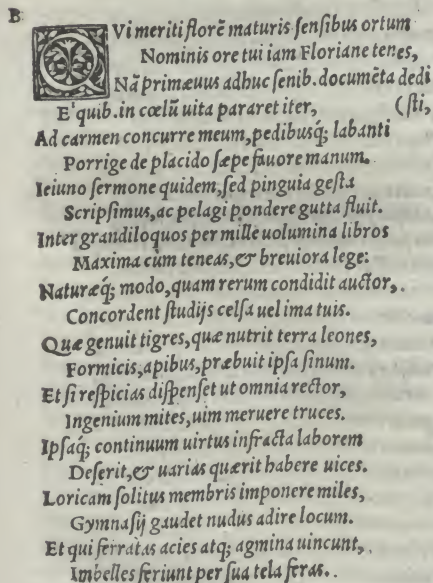 B
QVi meriti florẽ maturis ſenſibus ortum
Nominis ore tui iam Floriane tenes,
Nã primæuus adhuc ſenib. documẽta dedi
E' quib. in cœlũ uita pararet iter, (ſti,
Ad carmen concurre meum, pedibusq́; labanti
Porrige de placido ſæpe fauore manum.
Ieiuno ſermone quidem, ſed pinguia geſta
Scripſimus, ac pelagi pondere gutta fluit.
Inter grandiloquos per mille uolumina libros
Maxima cùm teneas, & breuiora lege:
Naturæq́; modo, quam rerum condidit auctor,.
Concordent ſtudijs celſa uel ima tuis.
Quæ genuit tigres, quæ nutrit terra leones,
Formicis, apibus, præbuit ipſa ſinum.
Et ſi reſpicias diſpenſet ut omnia rector,
Ingenium mites, uim meruere truces.
Ipſaq́; continuum uirtus infracta laborem
Deſerit, & uarias quærit habere uices.
Loricam ſolitus membris imponere miles,
Gymnaſij gaudet nudus adire locum.
Et qui ferratas acies atq; agmina uincunt,.
Imbelles feriunt per ſua tela feras..